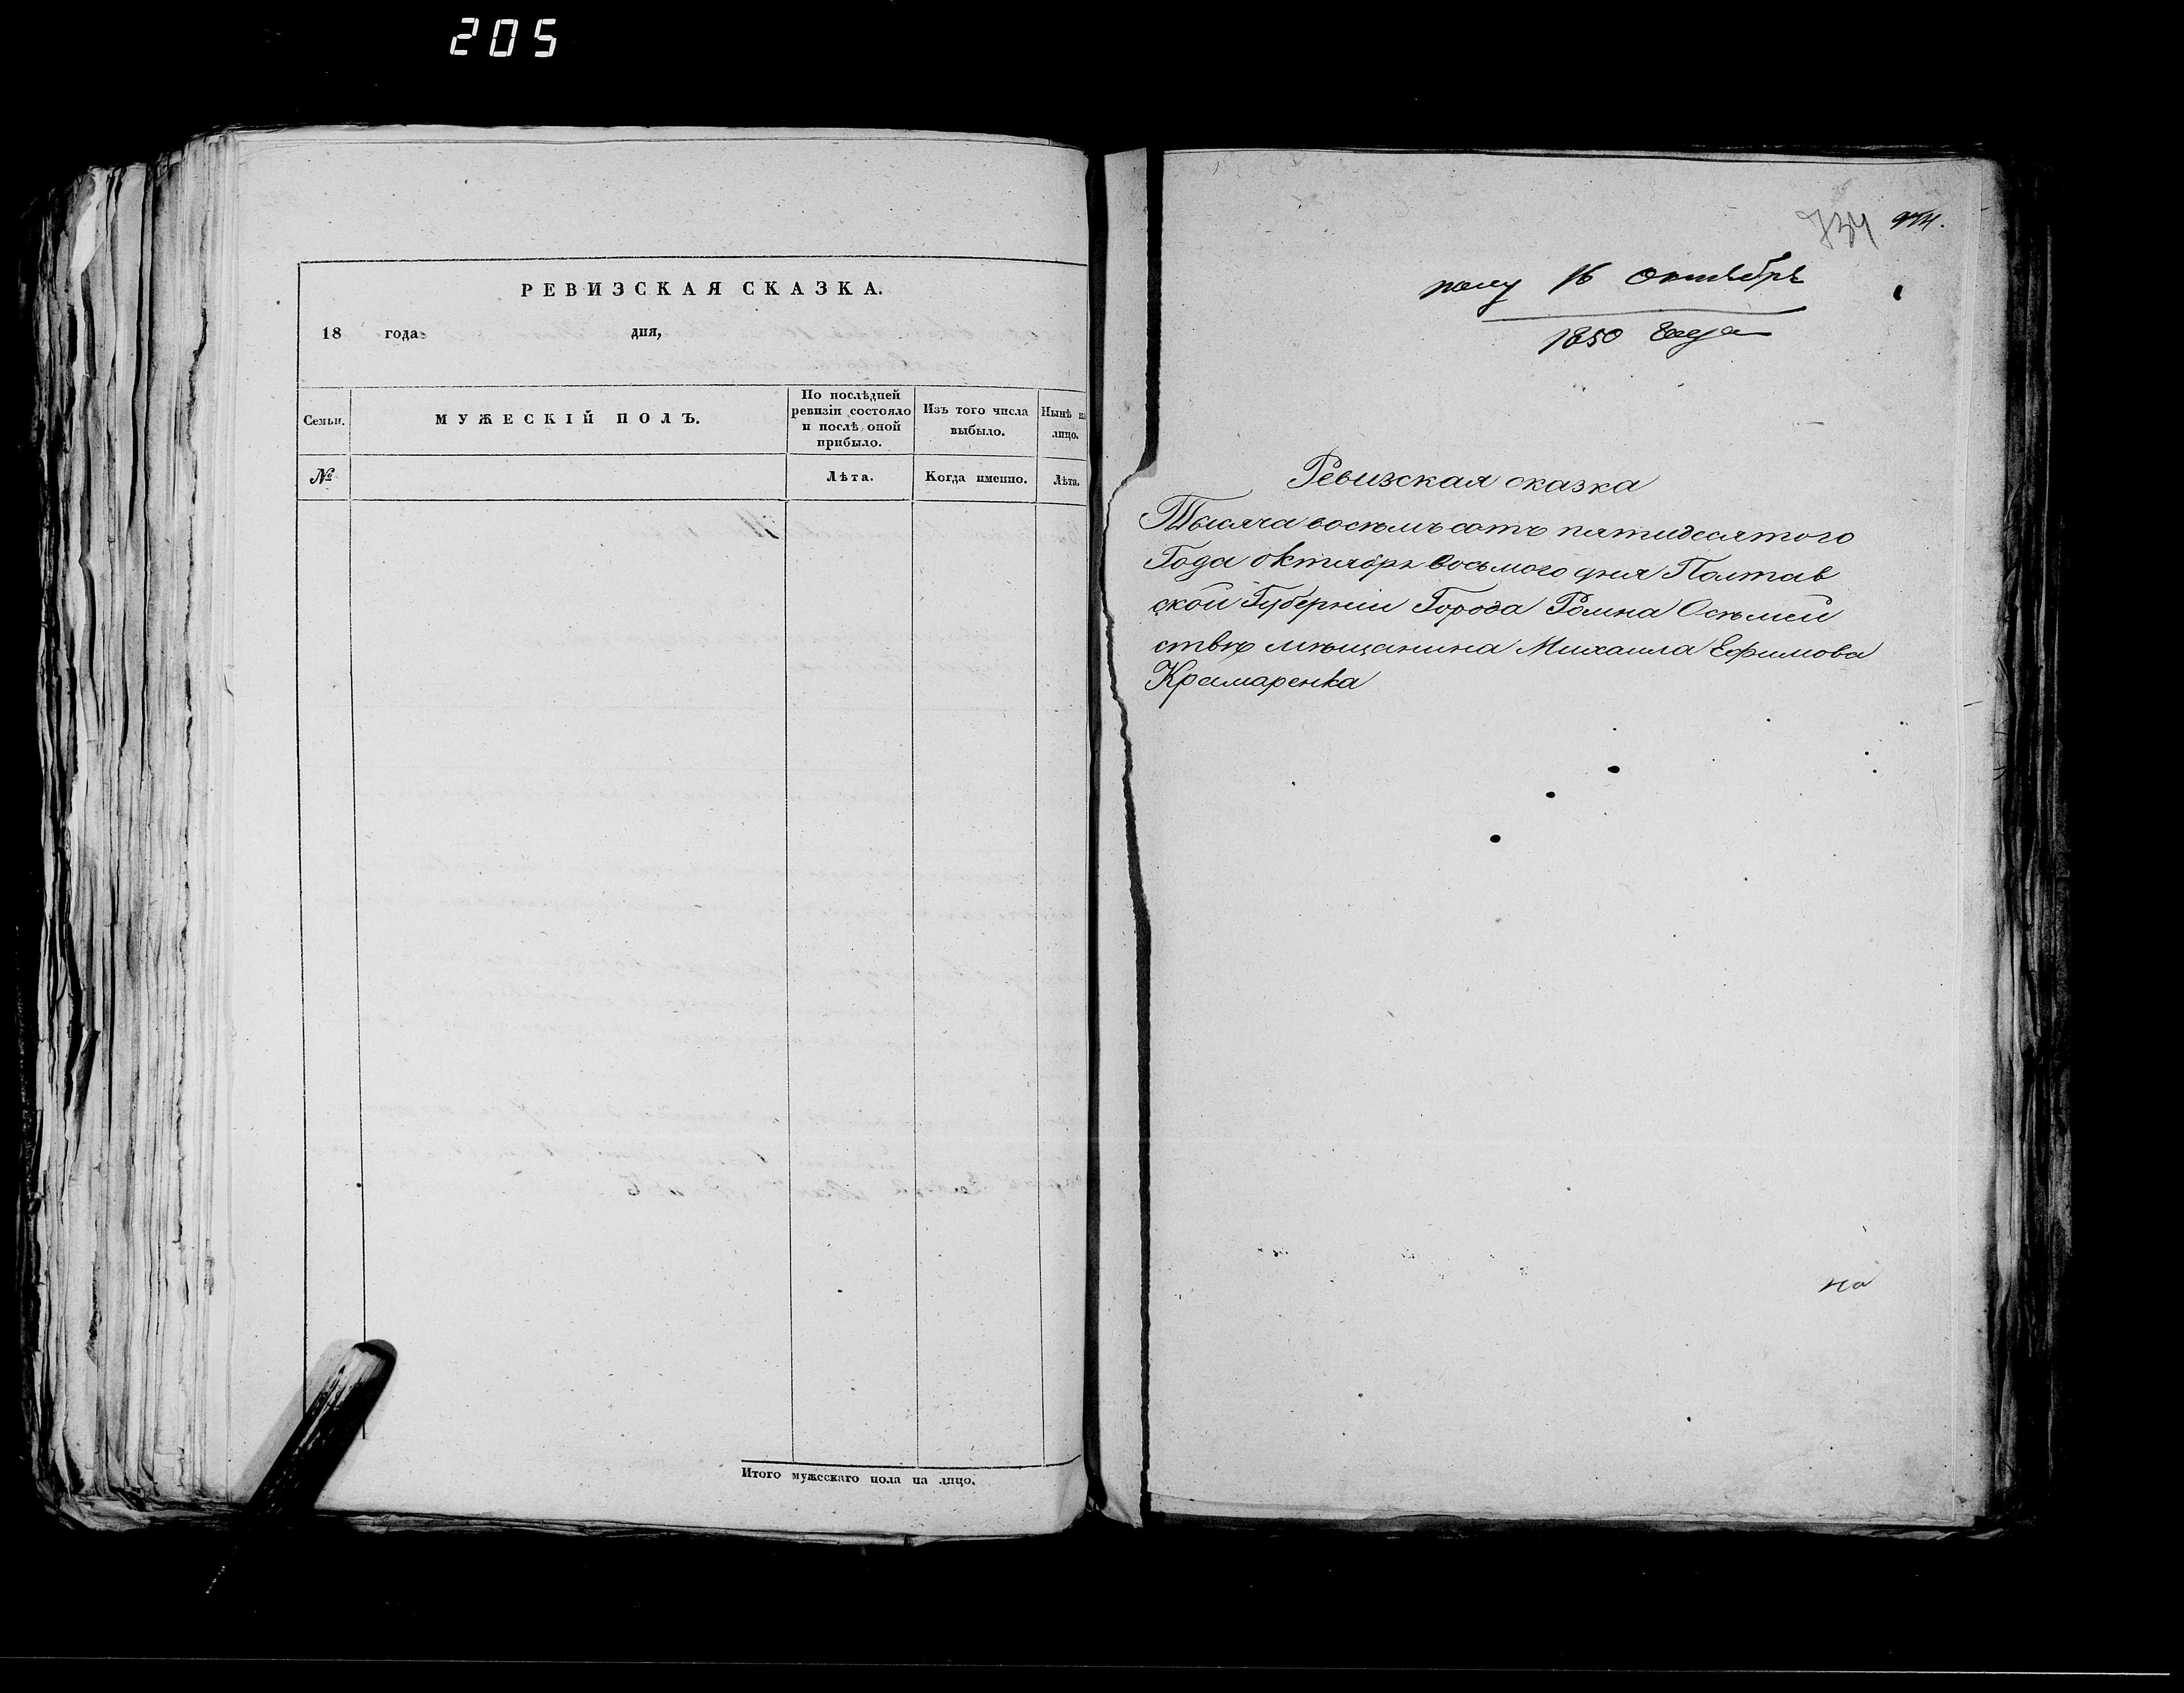 205
РЕВИЗСКАЯ СКАЗКА.
18 года дня,
Семьи.
МУЖЕСКІЙ ПОЛЪ.
По послѣдней
ревизіи состояло
и послѣ оной
прибыло.
Изъ того числа
выбыло.
Нынѣ на
лицо.
№
Лѣта.
Когда именно.
Лѣта.
Итого мужескаго пола на лицо.
734
974.
полу 16 октября
1850 года
Ревизская сказка
Тысяча восѣмъ сотъ пятидесятого
Года октября восьмого дня Полтав
ской Губерніи Города Ромна Осѣмей
ствѣ мѣщанина Михаила Ефимова
Крамаренка
на